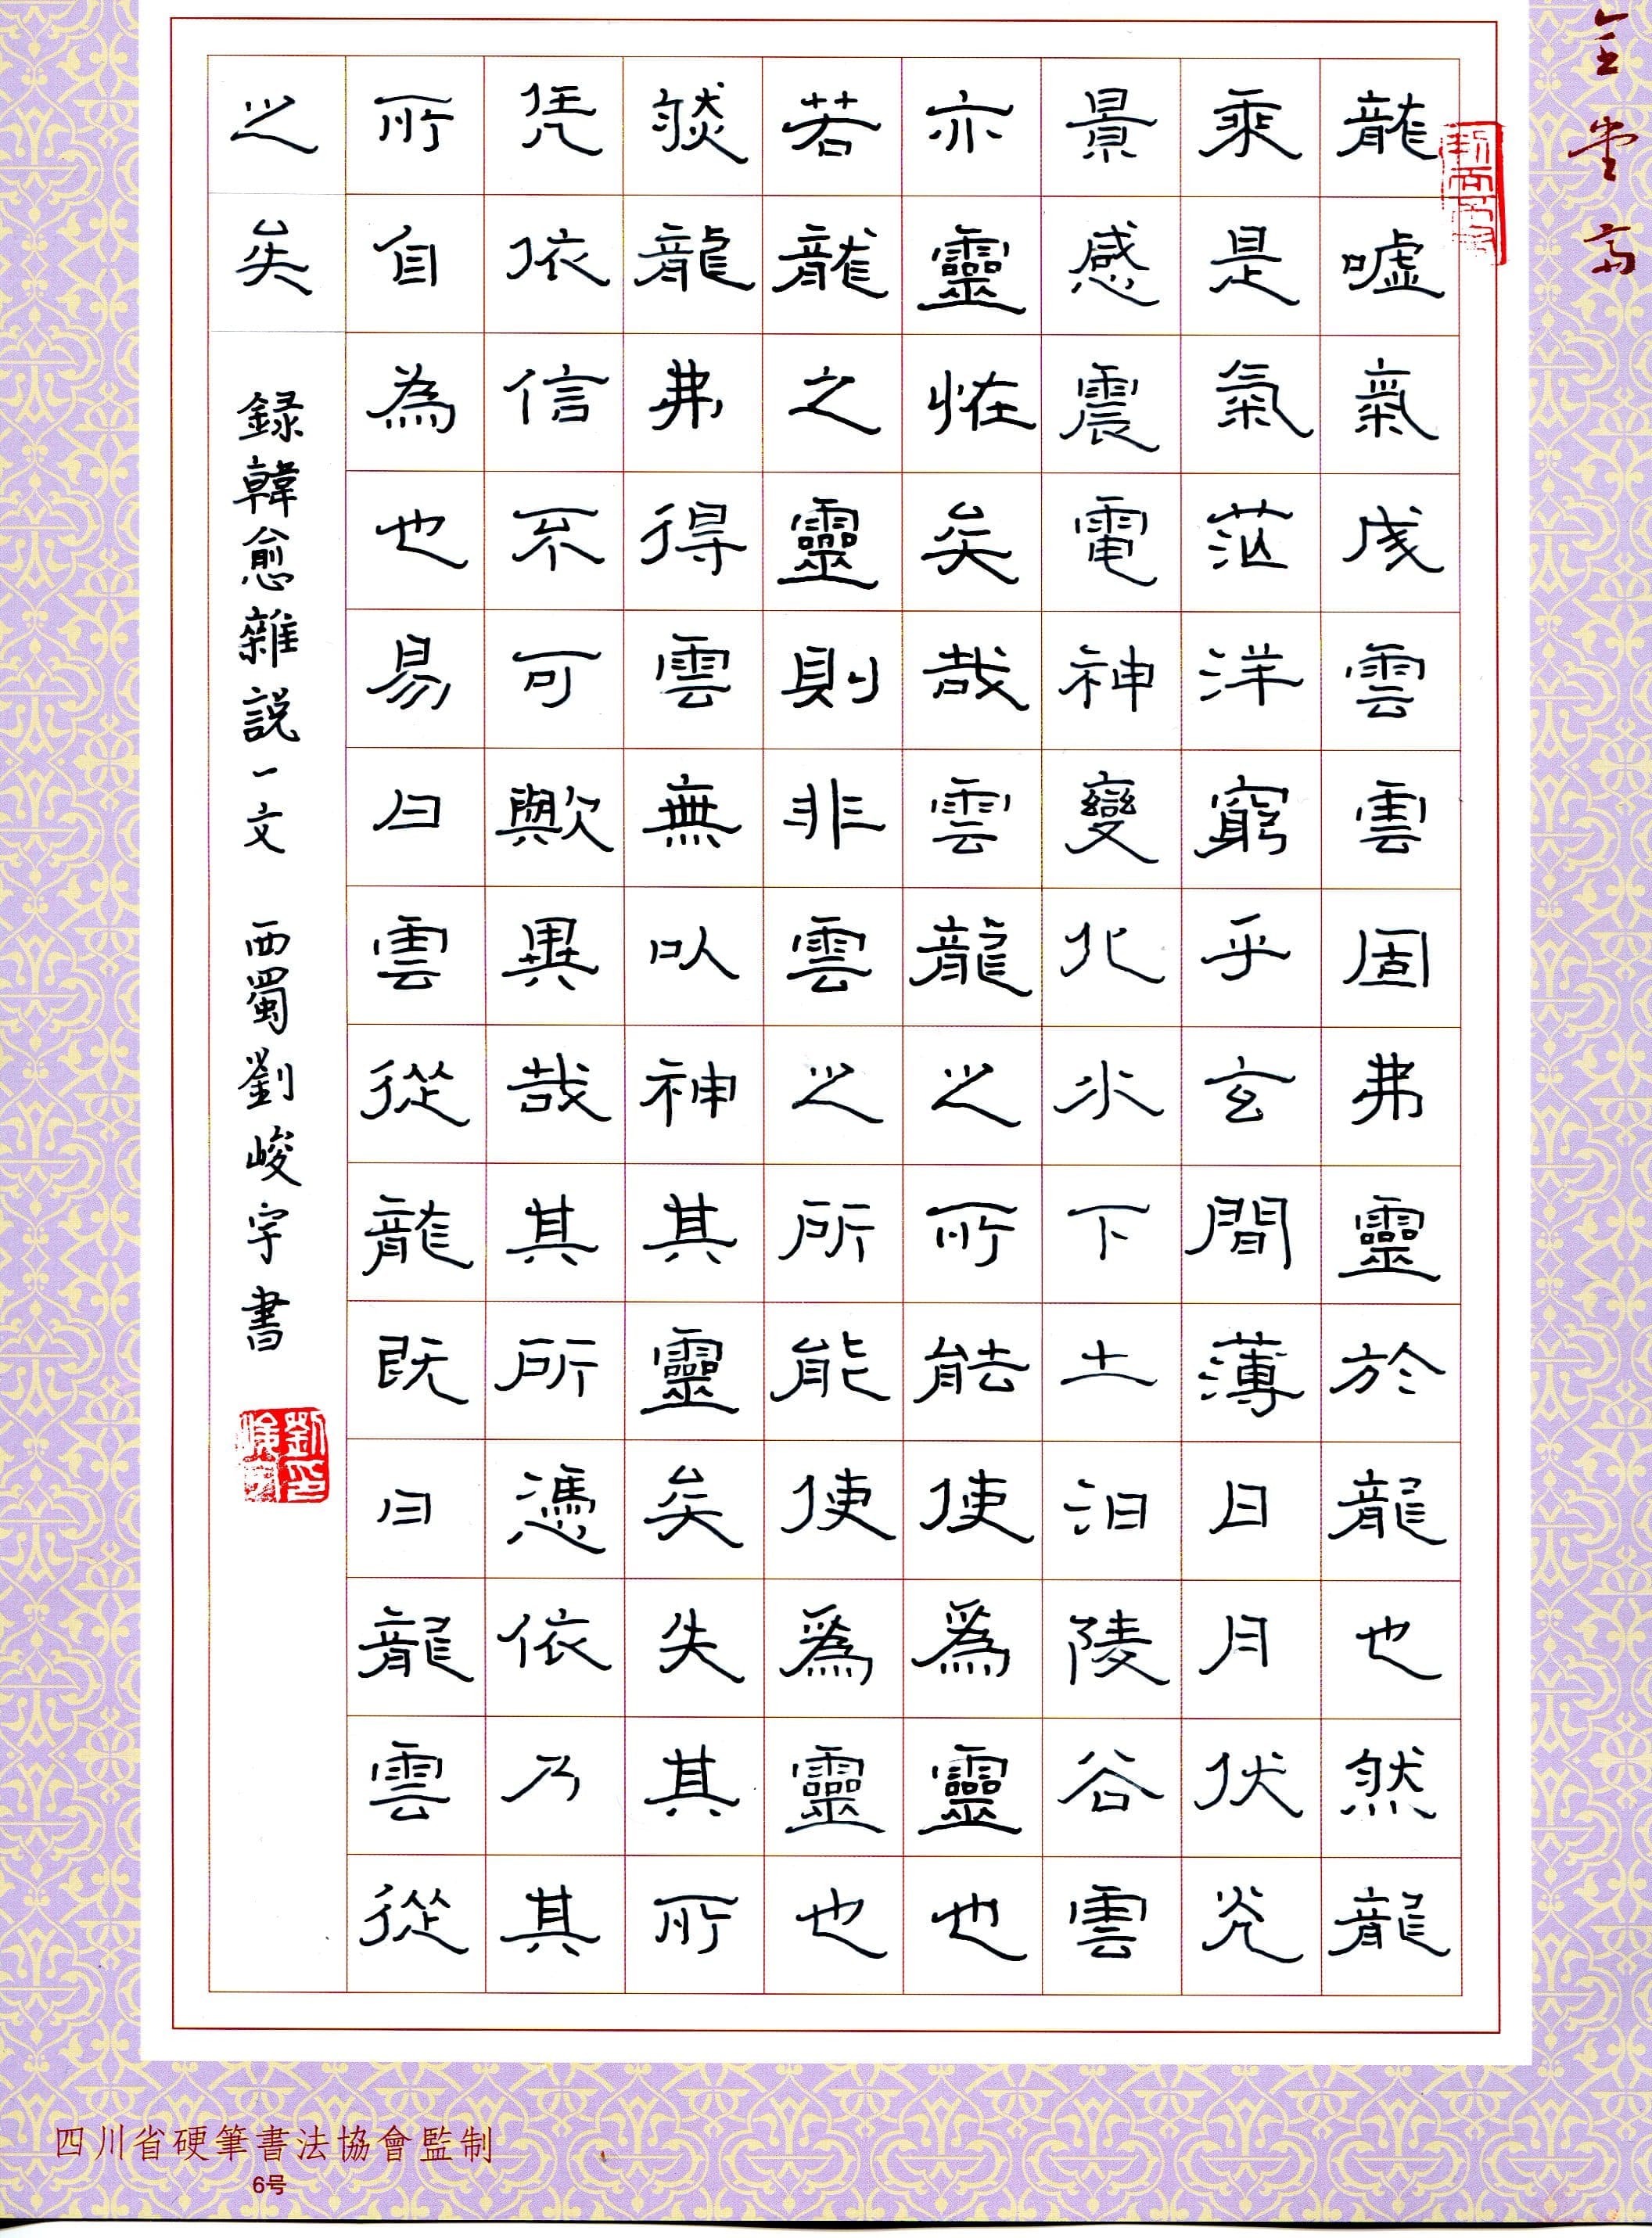 龍噓氣成雲雲固弗靈於龍也然龍
乘是氣茫洋窮乎玄間薄日月伏光
景感震電神變化水下土汩陵谷雲
亦靈恠矣哉雲龍之所能使為靈也
若龍之靈則非雲之所能使為靈也
然龍弗得雲無以神其靈矣失其所
凭依信不可歟異哉其所憑依乃其
所自為也易曰雲從龍既曰龍雲從
之矣
録韓愈雜説一文 西蜀劉峻宇書
四川省硬筆書法協會監制
6号